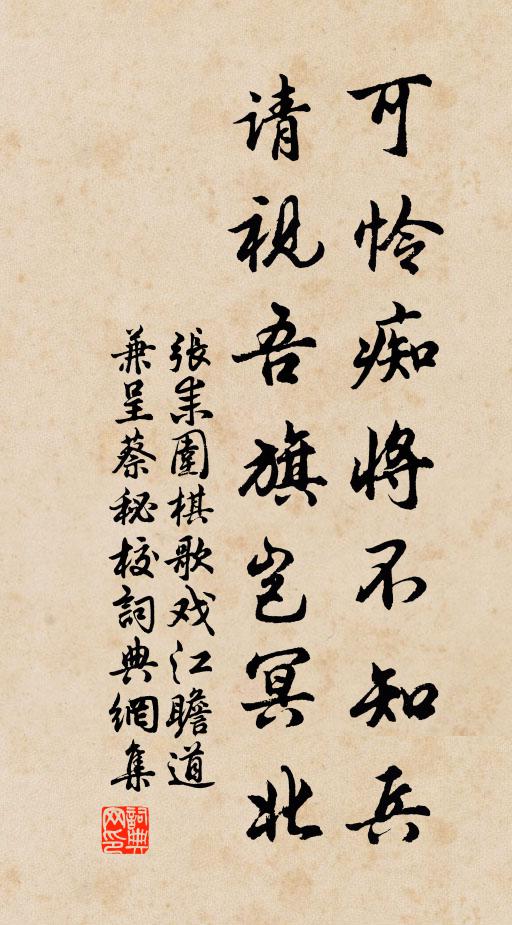 可怜痴将不知兵
请视吾旗岂冥北
張耒圍棋歌戏江瞻道
兼呈蔡秘校詞典網集
詞典网印